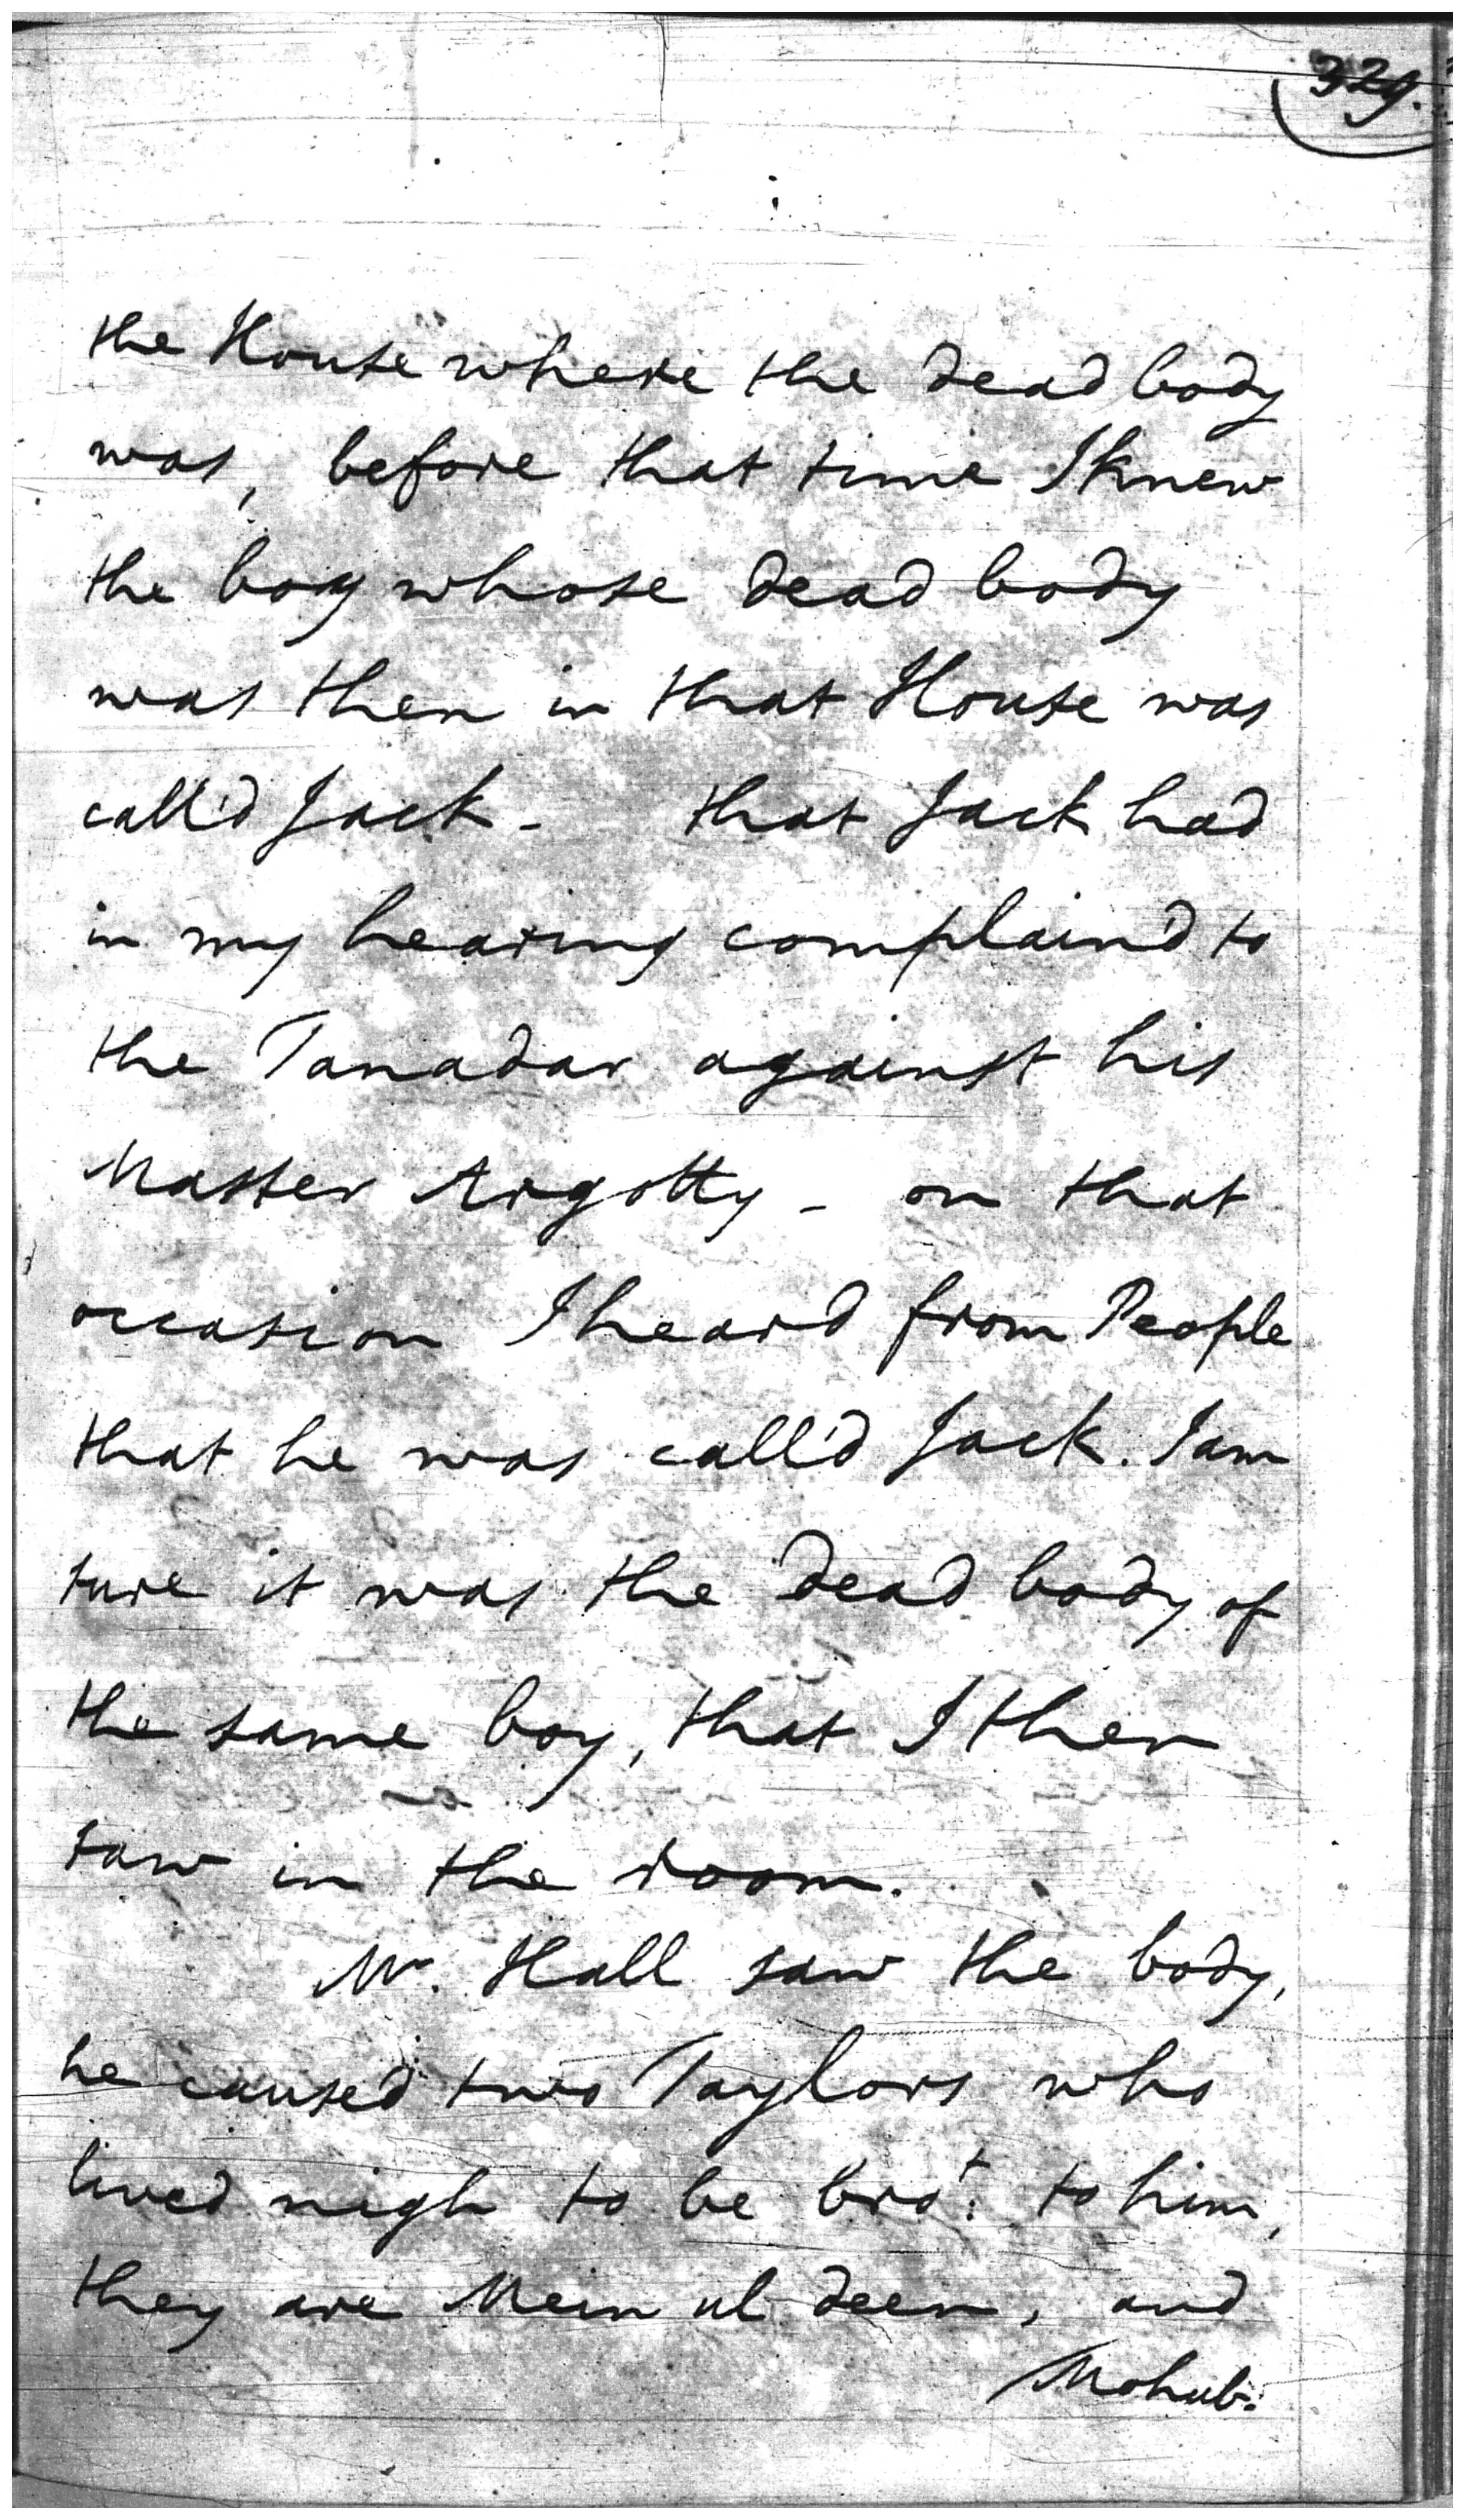 329.
the House where the dead body
was, before that time I knew
the boy whose dead body
was then in that House was
call'd Jack - that Jack had
in my hearing complain'd to
the Tanadar against his
Master Argotty - on that
occasion I heard from People
that he was call'd Jack. I am
sure it was the dead body of
the same boy, that I then
saw in the room.
Mr. Hall saw the body,
he caused two Taylors who
lived nigh to be bro.t to him,
they are Mein ul deen, and
Mohub.